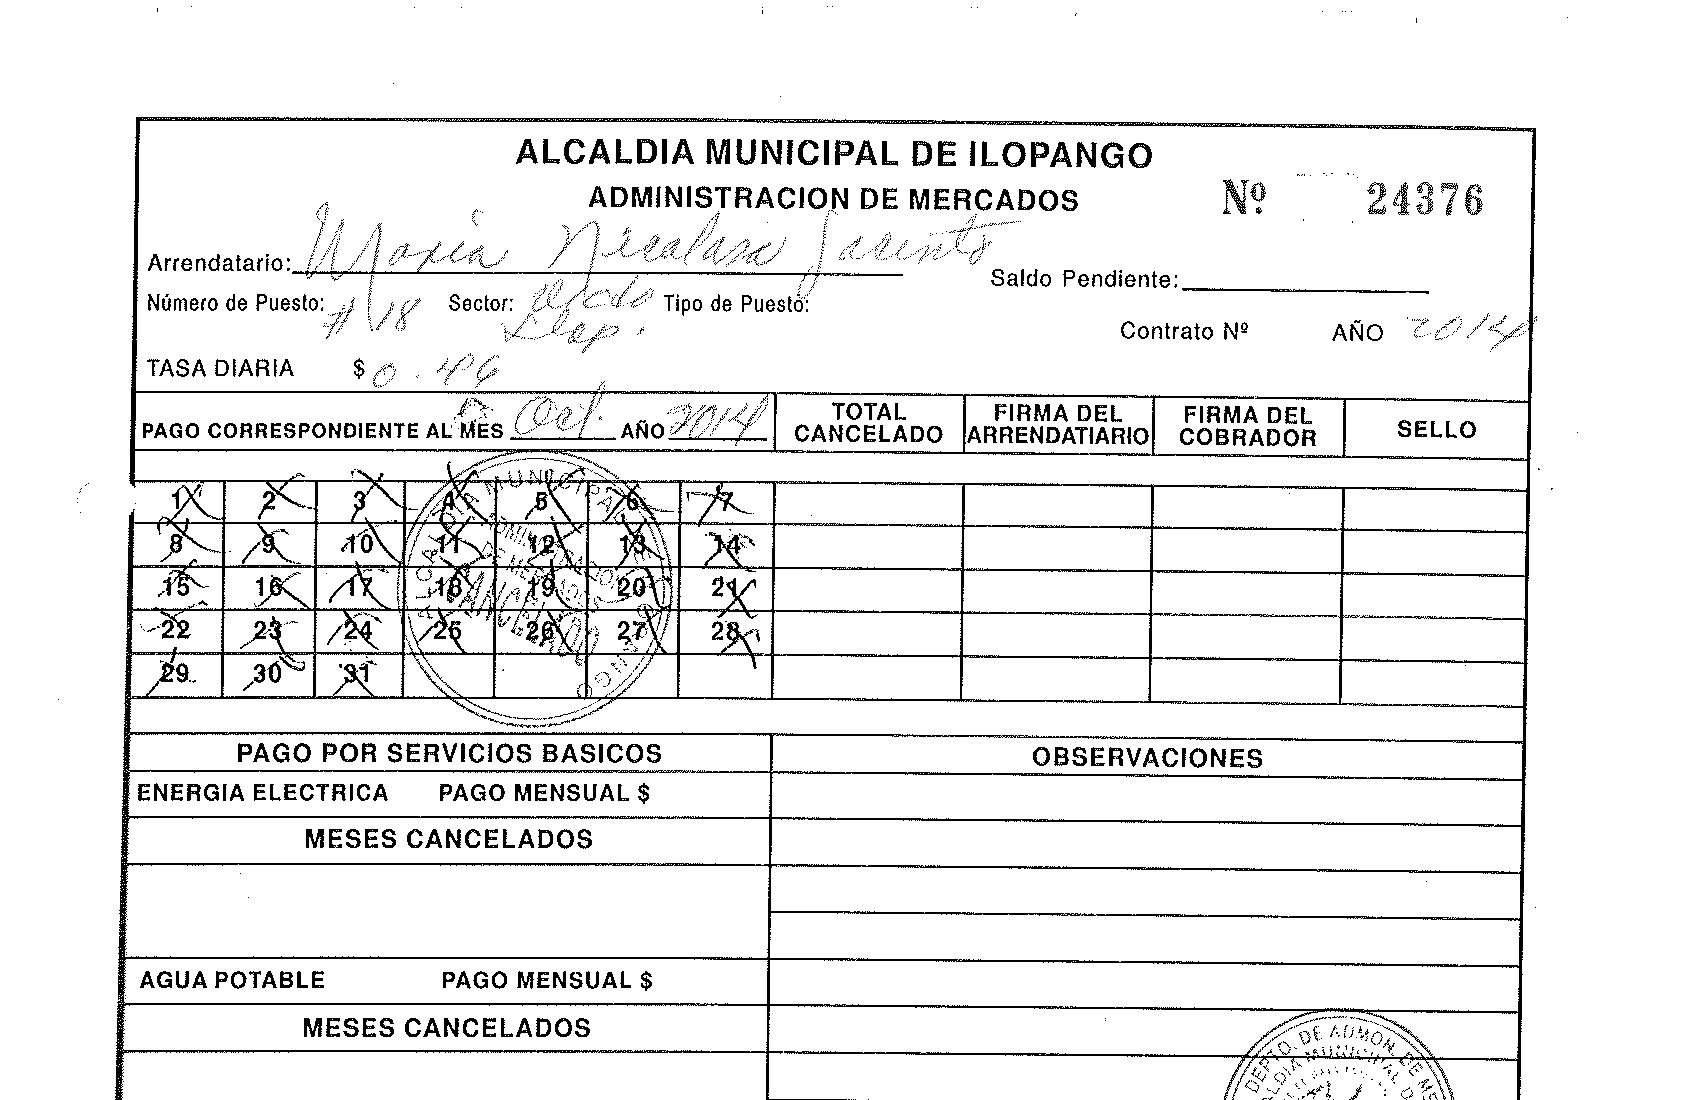 ALCALDIA MUNICIPAL DE ILOPANGO
ADMINISTRACION DE MERCADOS
Nº 24376
Arrendatario: Maria Nicolasa Jacinto
Saldo Pendiente:
Número de Puesto: # 18 Sector: Mcdo Ilop. Tipo de Puesto:
Contrato Nº AÑO 2014
TASA DIARIA $ 0.46
PAGO CORRESPONDIENTE AL MES Oct. AÑO 2014
TOTAL CANCELADO
FIRMA DEL ARRENDATIARIO
FIRMA DEL COBRADOR
SELLO
1 2 3 4 5 6 7
8 9 10 11 12 13 14
15 16 17 18 19 20 21
22 23 24 25 26 27 28
29 30 31
ALCALDIA MUNICIPAL DE ILOPANGO
CANCELADO
PAGO POR SERVICIOS BASICOS
OBSERVACIONES
ENERGIA ELECTRICA PAGO MENSUAL $
MESES CANCELADOS
AGUA POTABLE PAGO MENSUAL $
MESES CANCELADOS
DEPTO. DE ADMON. DE ME